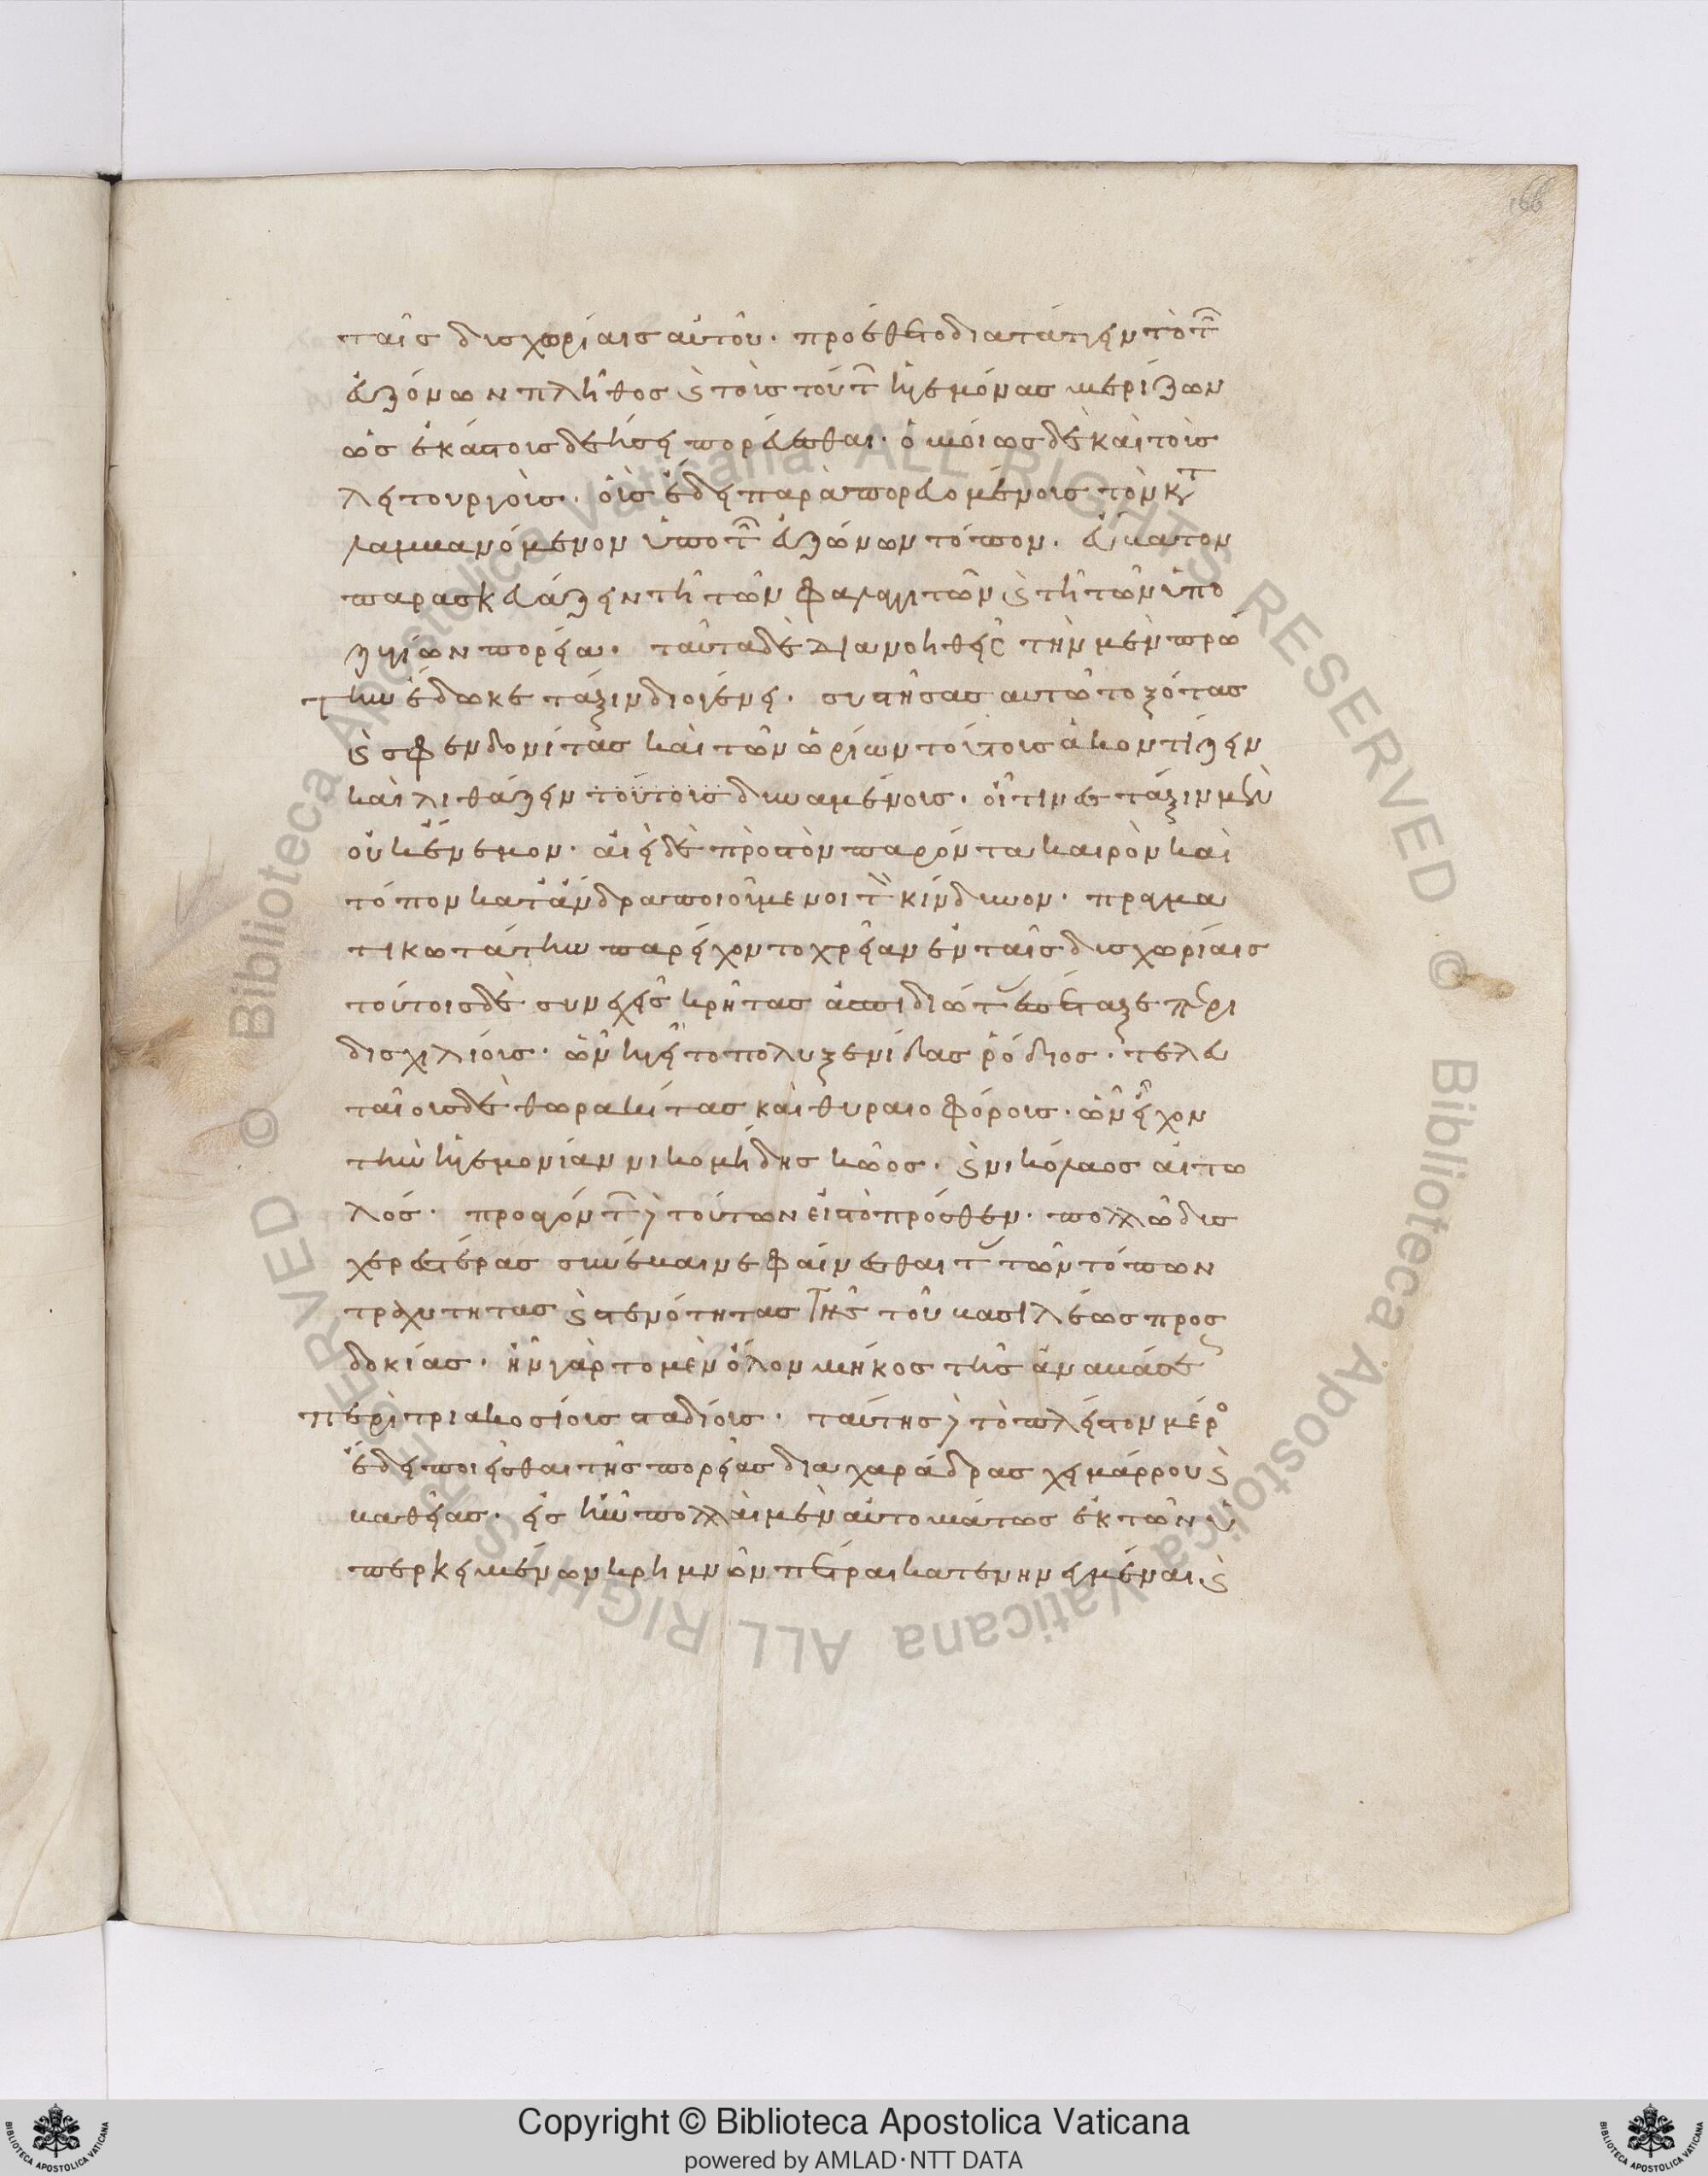 166
ταῖς δυσχωρίαις αὐτοῦ· προσέθετο διατάττειν τὸ τῶν
εὐζώνων πλῆθος καὶ τοὺς τούτων ἡγεμόνας μερίζων
ὡς ἑκάστους δεήσει πορεύεσθαι· ὁμοίως δὲ καὶ τοὺς
λειτουργούς· οὓς ἔδει παραπορευομένους τὸν κατα
λαμβανόμενον ὑπὸ τῶν εὐζώνων τόπον· εὔβατον
παρασκευάζειν τῇ τῶν φαλαγγιτῶν καὶ τῇ τῶν ὑπο
ζυγίων πορείᾳ· ταῦτα δὲ διανοηθεὶς τὴν μὲν πρώ
την ἔδωκε τάξιν διογένει· συστήσας αυτῷ τοξότας
καὶ σφενδονίτας καὶ τῶν ὀρίων τοὺς ἀκοντίζειν
καὶ λιθάζειν τούτοις δυναμένους· οἵτινες τάξιν μὲν
οὐκ ἔνεμον· αἰεὶ δὲ πρὸς τὸν παρόντα καιρὸν καὶ
τόπον κατ' ἄνδρα ποιούμενοι τὸν κίνδυνον· πραγμα
τικωτάτην παρείχοντο χρείαν ἐν ταῖς δυσχωρίαις
τούτοις δὲ συνεχεῖς κρῆτας ἀσπιδιώτας ἐπέταξε περὶ
δισχιλίους· ὧν ἡγεῖτο πολυξενίδας ῥόδιος· τελευ
ταίους δὲ θωρακίτας καὶ θυραιοφόρους· ὧν εἶχον
τὴν ἡγεμονίαν νικομήδης κῷος· καὶ νικόλαος αἰτω
λός· προαγόντων δὲ τούτων εἰς τὸ πρόσθεν· πολλῷ δυσ
χερεστέρας συνέβαινε φαίνεσθαι τὰς τῶν τόπων
τραχυτητας καὶ στενότητας τῆς τοῦ βασιλέως προσ
δοκίας· ἦν γὰρ το μὲν ὅλον μῆκος τῆς ἀναβάσεως
περὶ τριακοσίους σταδίους· ταύτης δὲ τὸ πλεῖστον μέρος
ἔδει ποιεῖσθαι τῆς πορείας δια χαράδρας χειμάρρου καὶ
βαθείας· εἰς ἣν πολλαὶ μὲν αὐτομάτως ἐκ τῶν ὑ
περκειμένων κρημνῶν πέτραι κατενηνειμέναι καὶ
Copyright © Biblioteca Apostolica Vaticana
powered by AMLAD·NTT DATA